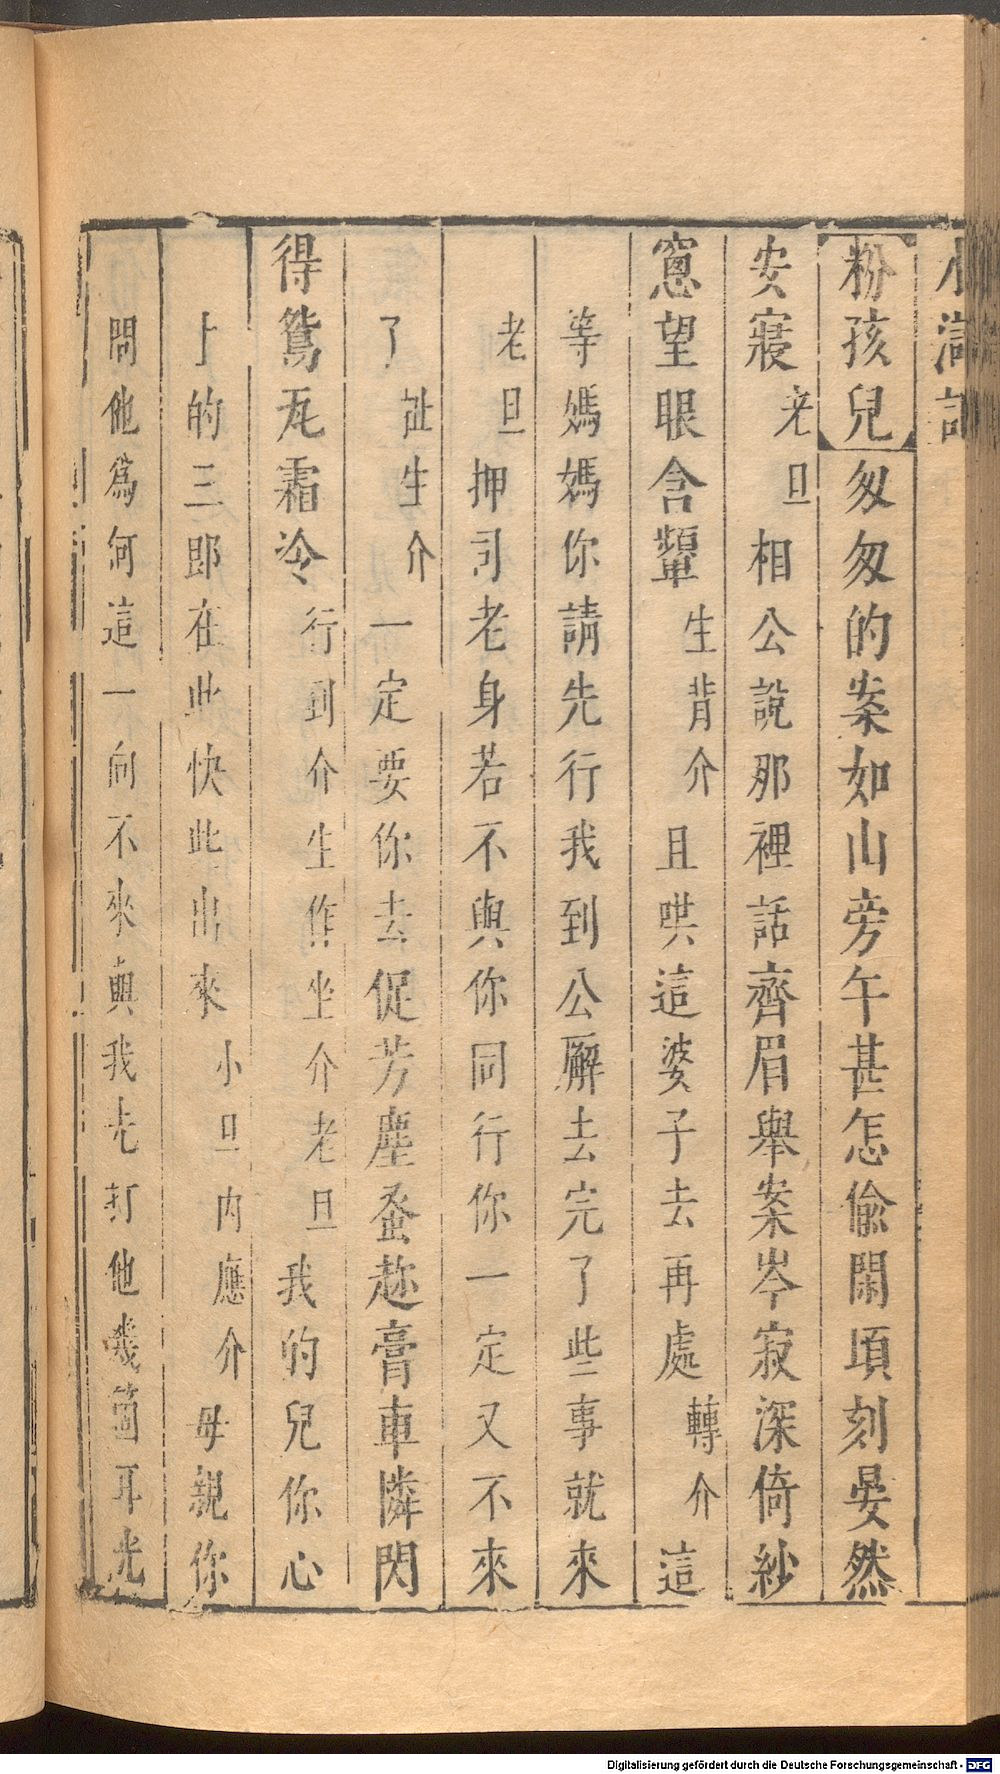 水滸記
粉孩兒匆匆的案如山旁午甚怎偸閑頃刻晏然
安寢老旦相公說那裡話齊眉舉案岑寂深倚紗
窻望眼含顰生背介且哄這婆子去再處轉介這
等媽媽你請先行我到公廨去完了些事就來
老旦押司老身若不與你同行你一定又不來
了扯生介一定要你去促芳塵蚤趂膏車隣閃
得鴛瓦霜冷行到介生作坐介老旦我的兒你心
上的三郎在此快此出來小旦內應介母親你
問他爲何這一向不來與我先打他幾箇耳光
Digitalisierung gefördert durch die Deutsche Forschungsgemeinschaft - DFG